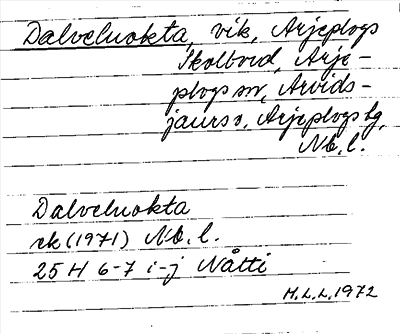 Dalveluokta, vik, Arjeplogs
skolbord, Arje-
plogs sn, Arvids-
jaurs o. Arjeplogs tg,
Nb. l.
Dalveluokta
ek (1971) Nb. l.
25 H 6-7 i-j Nåtti
H.L.L. 1972